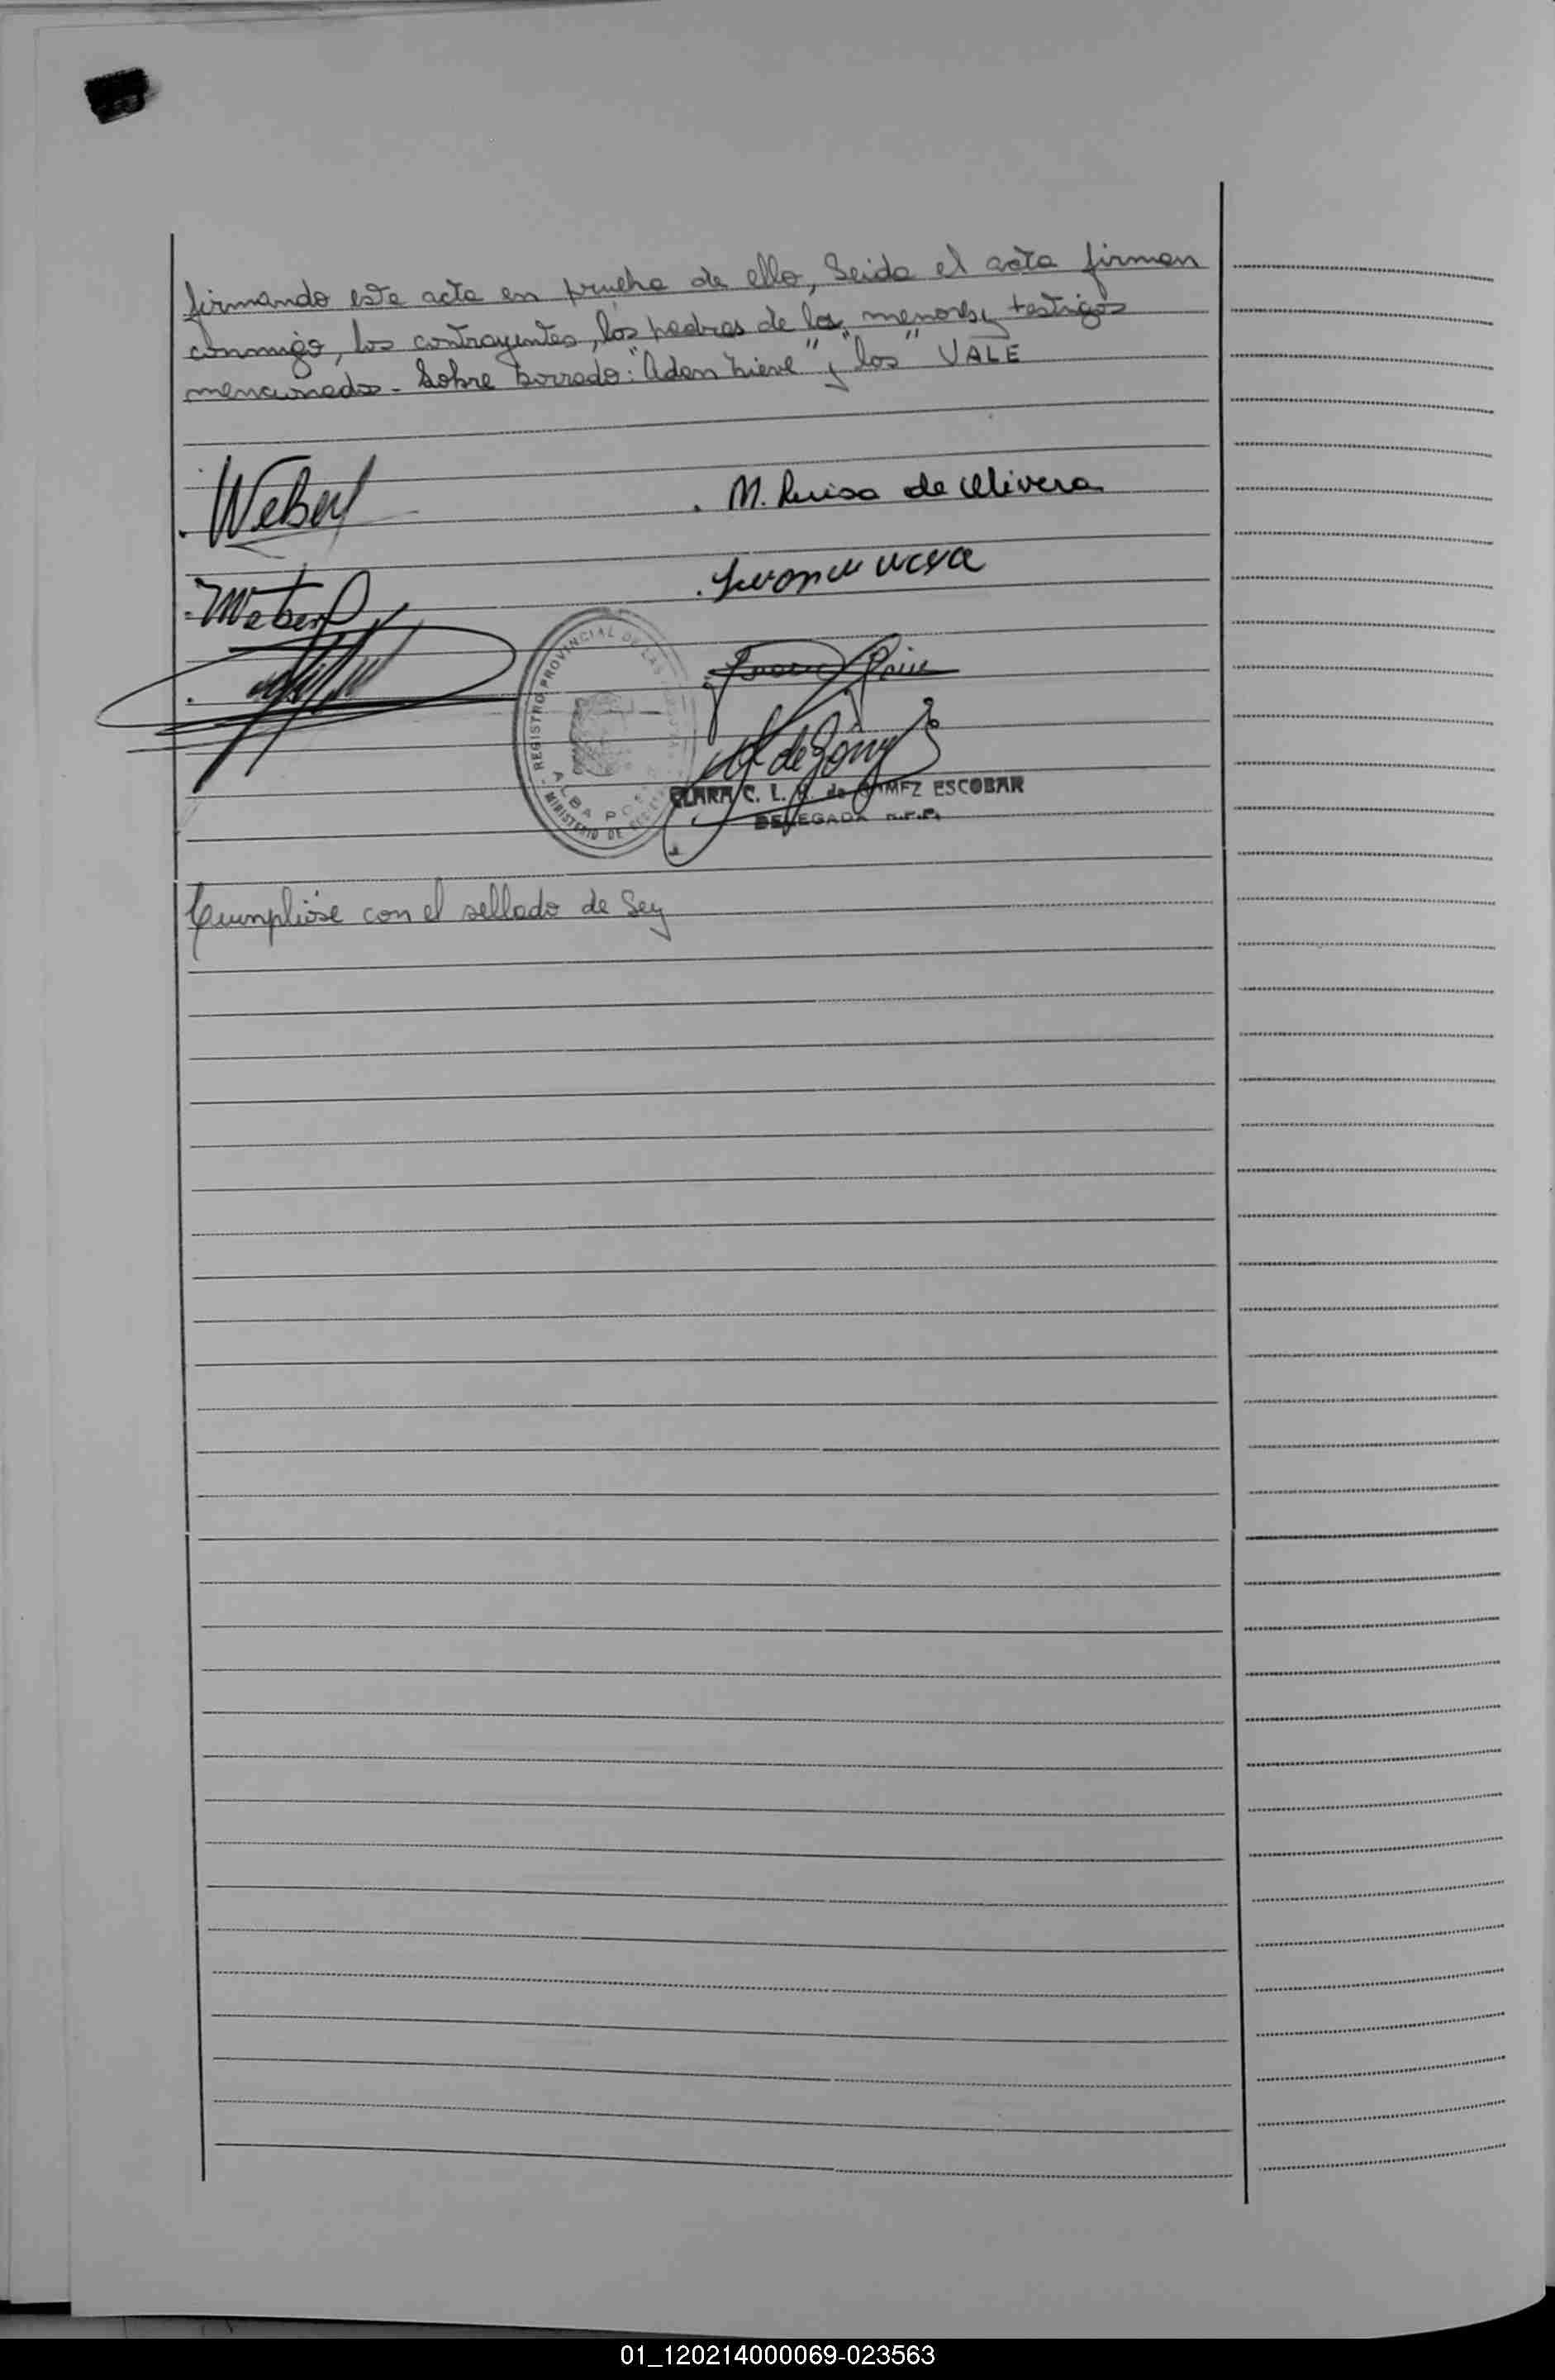 firmando este acta en prueba de ello, Leida el acta firman
conmigo, los contrayentes, los padres de los menores y testigos
mencionados - Sobre borrado: "Aden" "los" VALE
Weber
M. Luisa de Olivera
Weber
REGISTRO PROVINCIAL DE LAS
ALBA PO
MINISTERIO DE
CLARA C. L. de GAMEZ ESCOBAR
DELEGADA R.P.P.
Cumplióse con el sellado de Ley
01_120214000069-023563